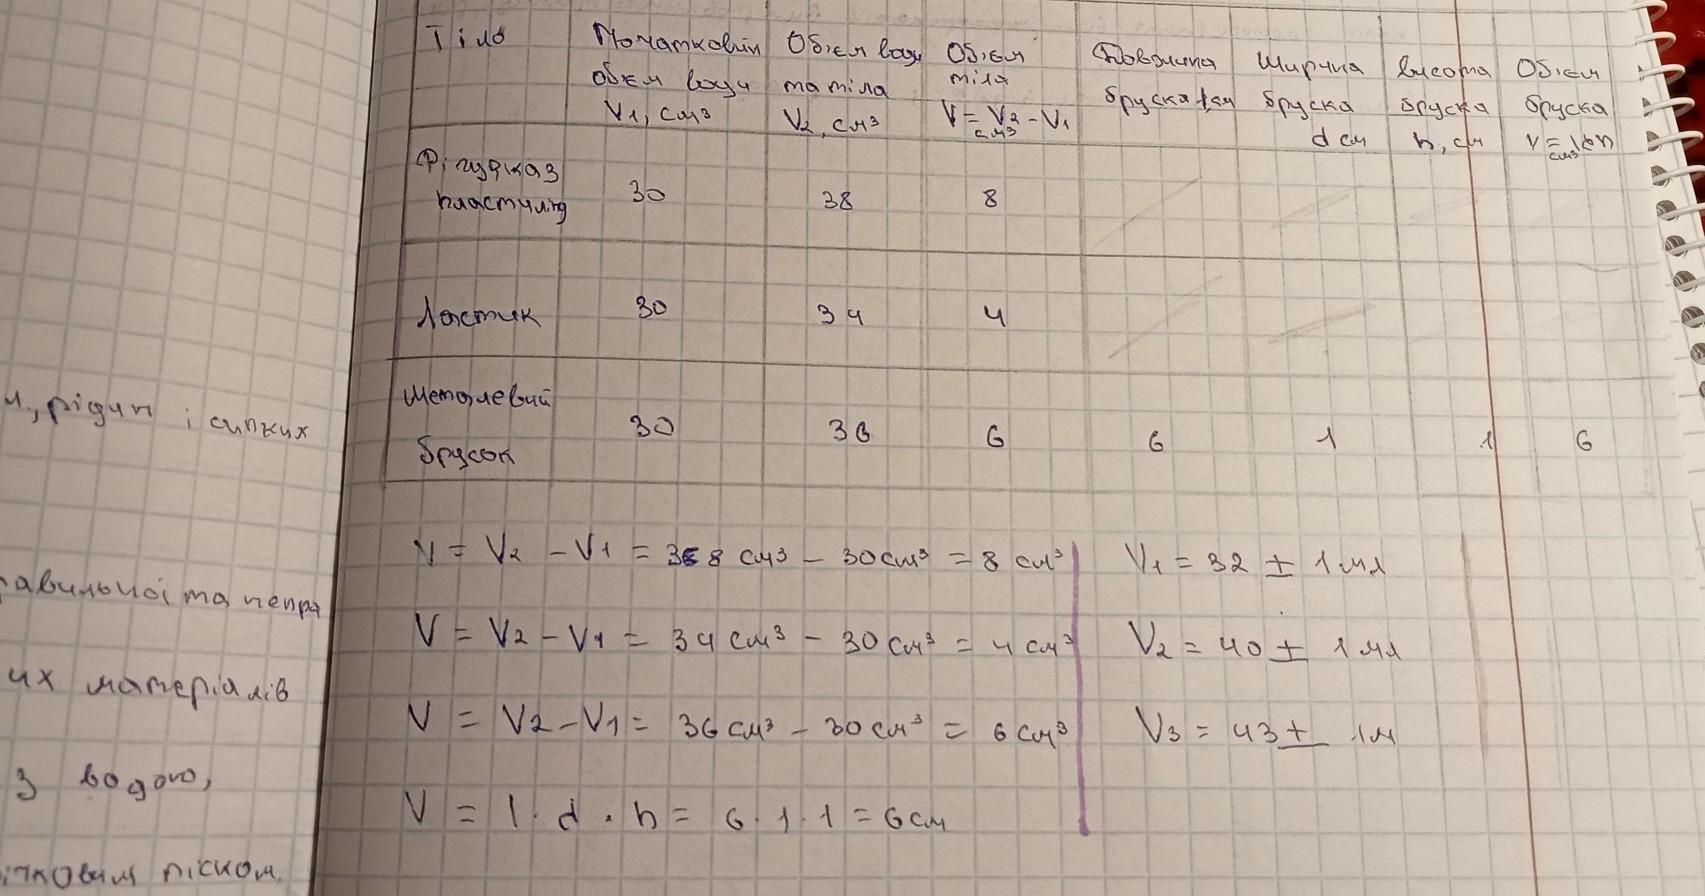 Тіло
Початковий
обєм води
V1, см³
Обʼєм води
та тіла
V2, см³
Обʼєм
тіла
V = V2 - V1
см³
Довжина
бруска l, см
Ширина
бруска
d см
Висота
бруска
h, см
Обʼєм
бруска
V = ldh
см³
Фігурка з
пластиліну
30
38
8
Ластик
30
34
4
Металевий
брусок
30
36
6
6
1
1
6
V = V2 - V1 = 38 см³ - 30 см³ = 8 см³
V = V2 - V1 = 34 см³ - 30 см³ = 4 см³
V = V2 - V1 = 36 см³ - 30 см³ = 6 см³
V = l · d · h = 6 · 1 · 1 = 6 см
V1 = 32 ± 1 мл
V2 = 40 ± 1 мл
V3 = 43 ± 1м
рідин і сипких
авильної та непра
их матеріалів
з водою,
піском.